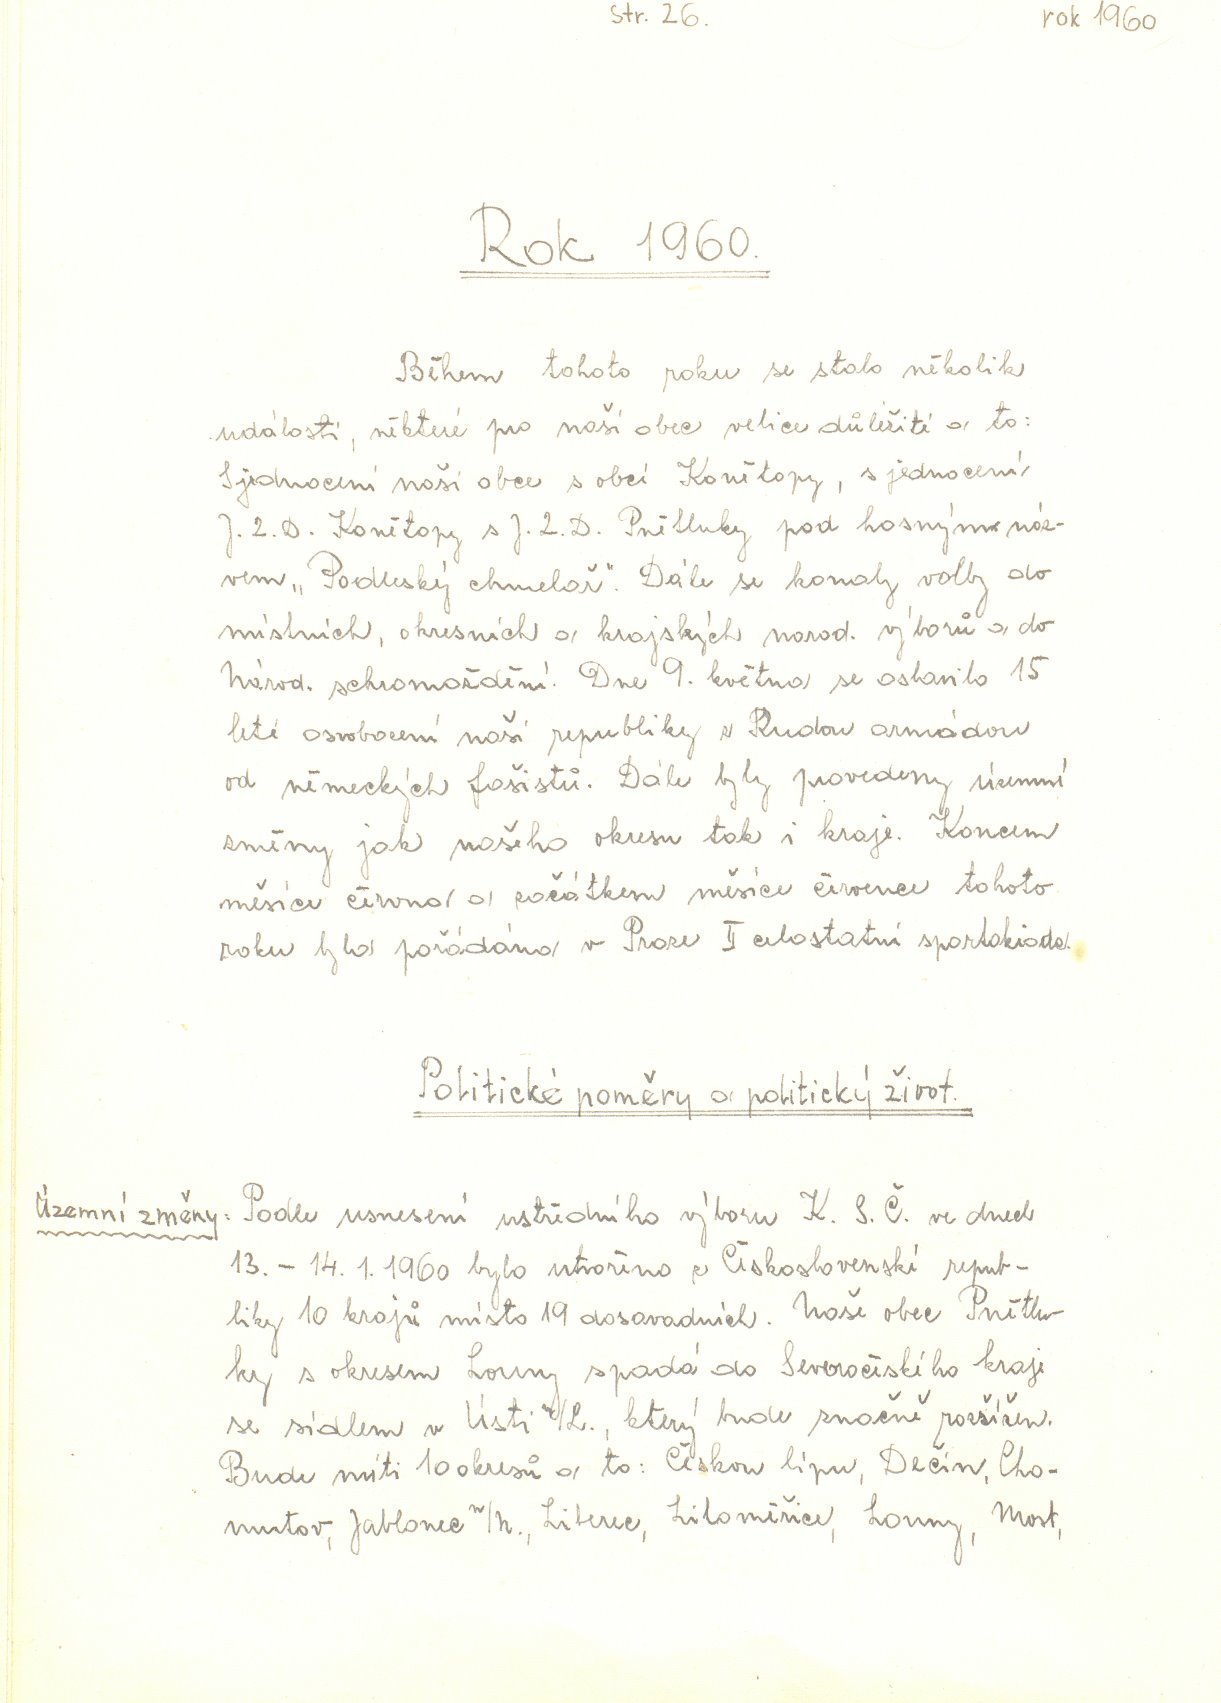 str. 26.
rok 1960
Rok 1960.
Během tohoto roku se stalo několik
událostí, některé pro naší obec velice důležité a to:
Sjednocení naší obce s obcí Konětopy, sjednocení
J.Z.D. Konětopy s J.Z.D. Pnětluky pod hosným náz-
vem „Podleský chmelař". Dále se konaly volby do
místních, okresních a krajských národ. výborů a do
Národ. schromáždění. Dne 9. května se oslavilo 15
leté osvobození naší republiky s Rudou armádou
od německých fašistů. Dále byly provedeny územní
změny jak našeho okresu tak i kraje. Koncem
měsíce června a začátkem měsíce července tohoto
roku byla pořádána v Praze II celostatní spartakiada.
Politické poměry a politický život.
Územní změny: Podle usnesení ustředního výboru K.S.Č. ve dnech
13. – 14. 1. 1960 bylo utvořeno z Československé repub-
liky 10 krajů místo 19 dosavadních. Naše obec Pnětlu-
ky s okresem Louny spadá do Severočeského kraje
se sídlem v Ústí n/L., který bude značně rozšířen.
Bude míti 10 okresů a to: Českou lípu, Dečín, Cho-
mutov, Jablonec n/N., Liberec, Litoměřice, Louny, Most,